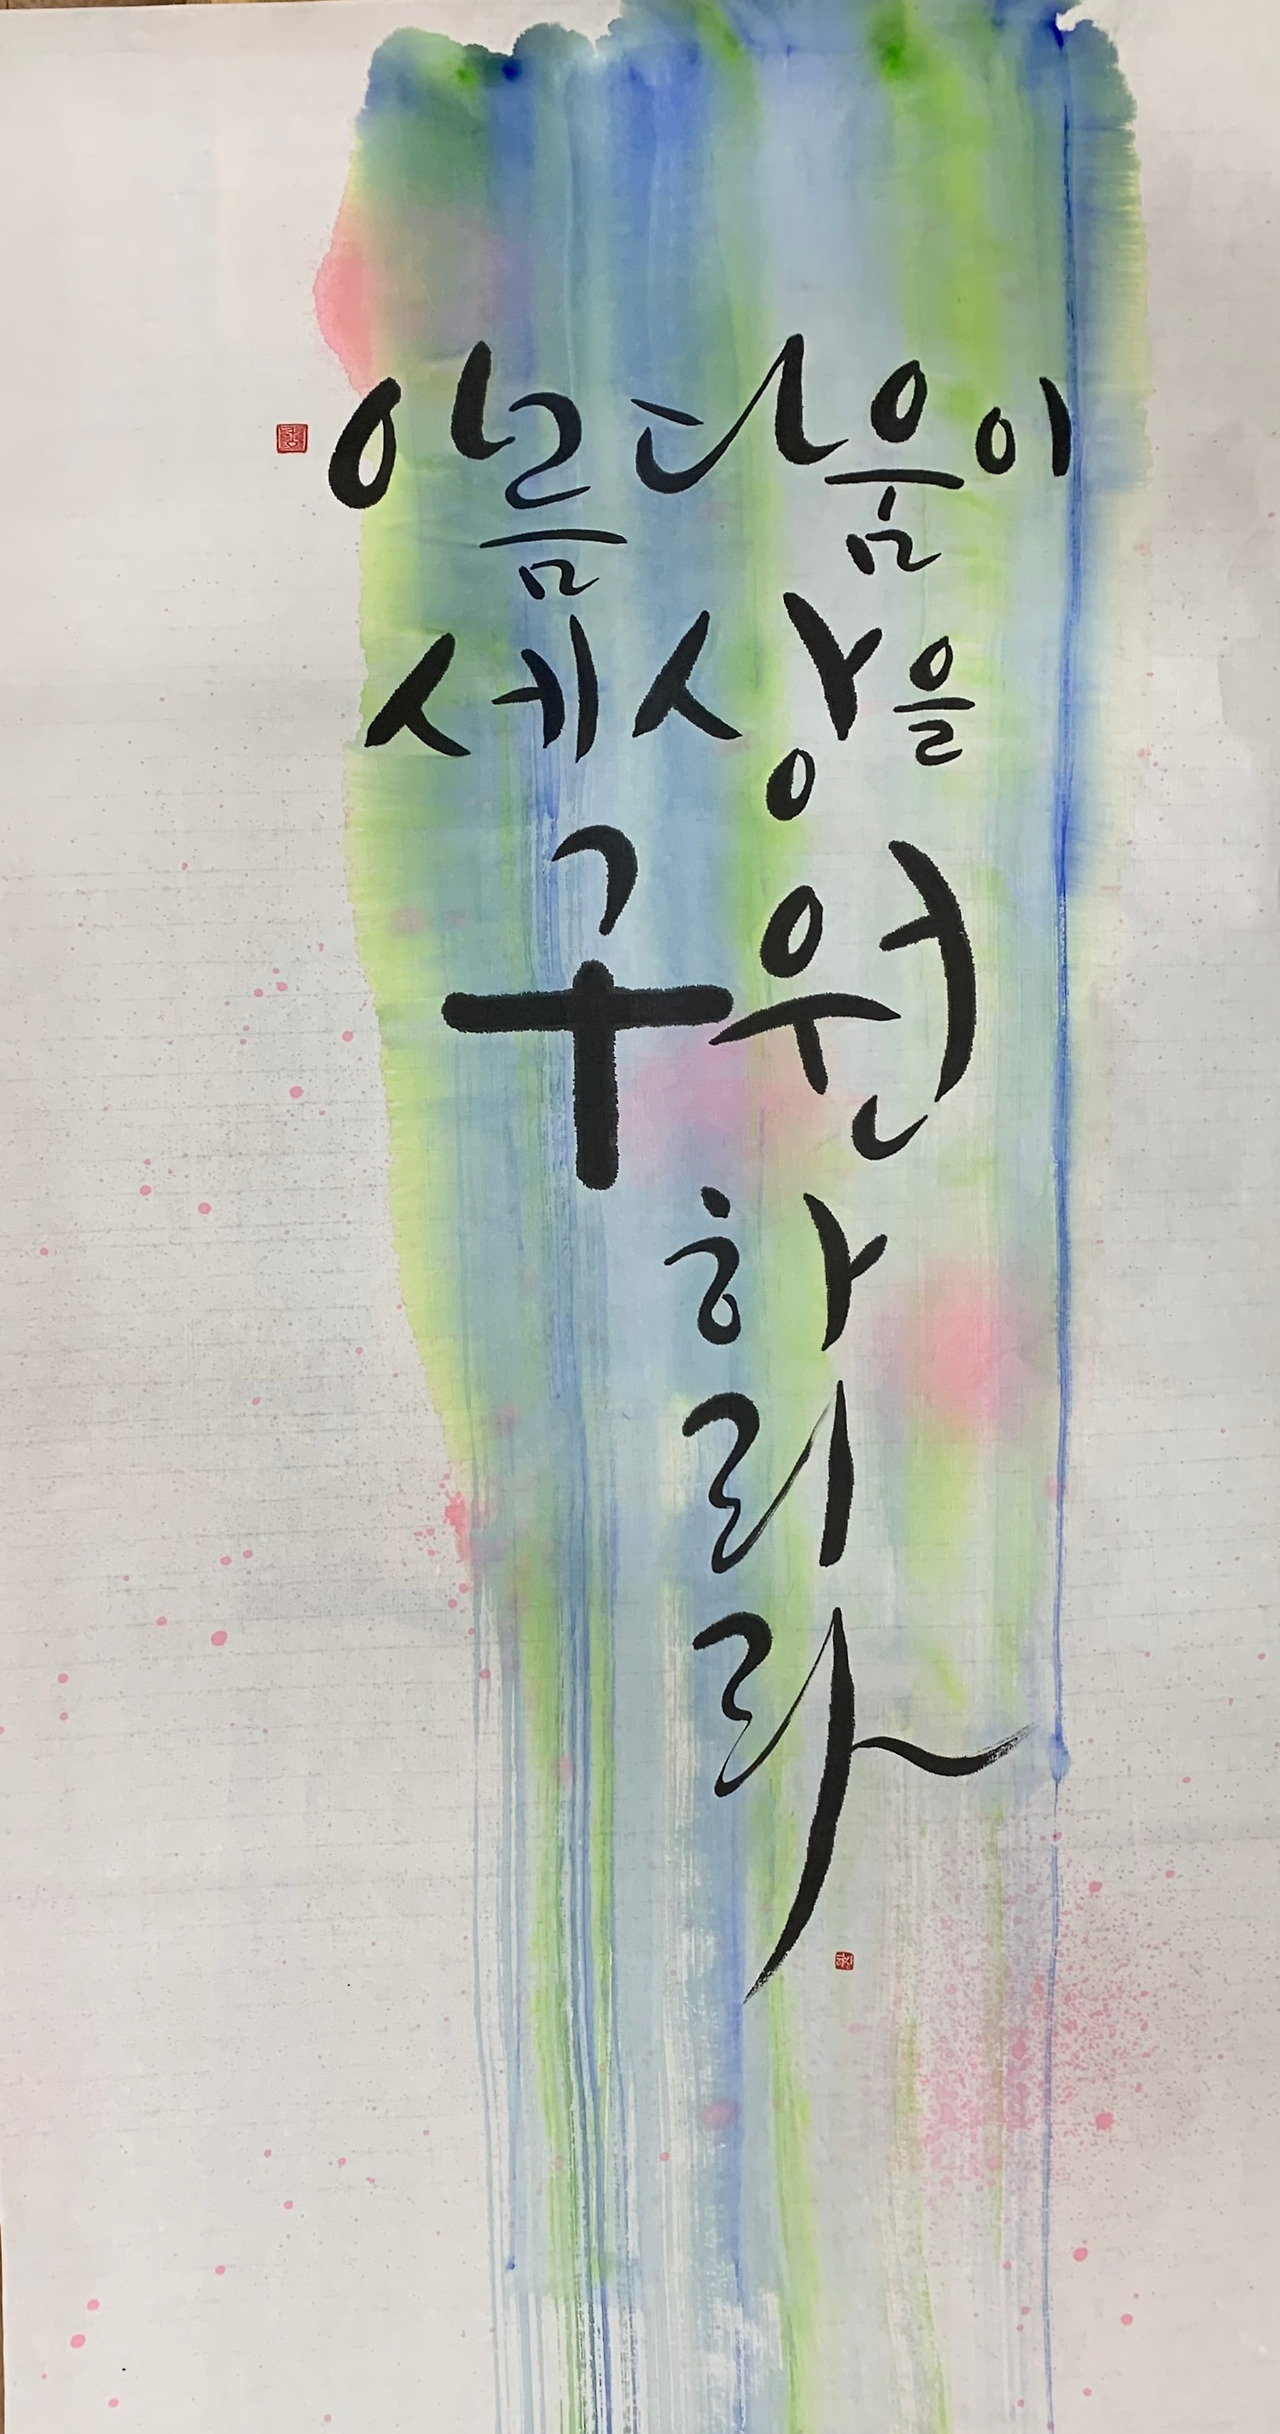 아름다움이
세상을
구원
하
리
라